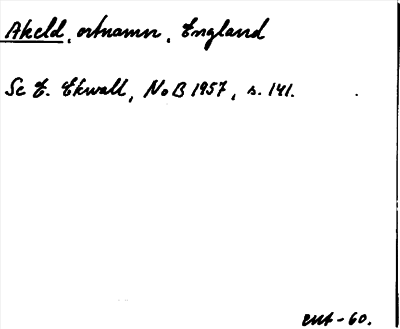 Akeld, ortnamn, England
Se E. Ekwall, NoB 1957, s. 141.